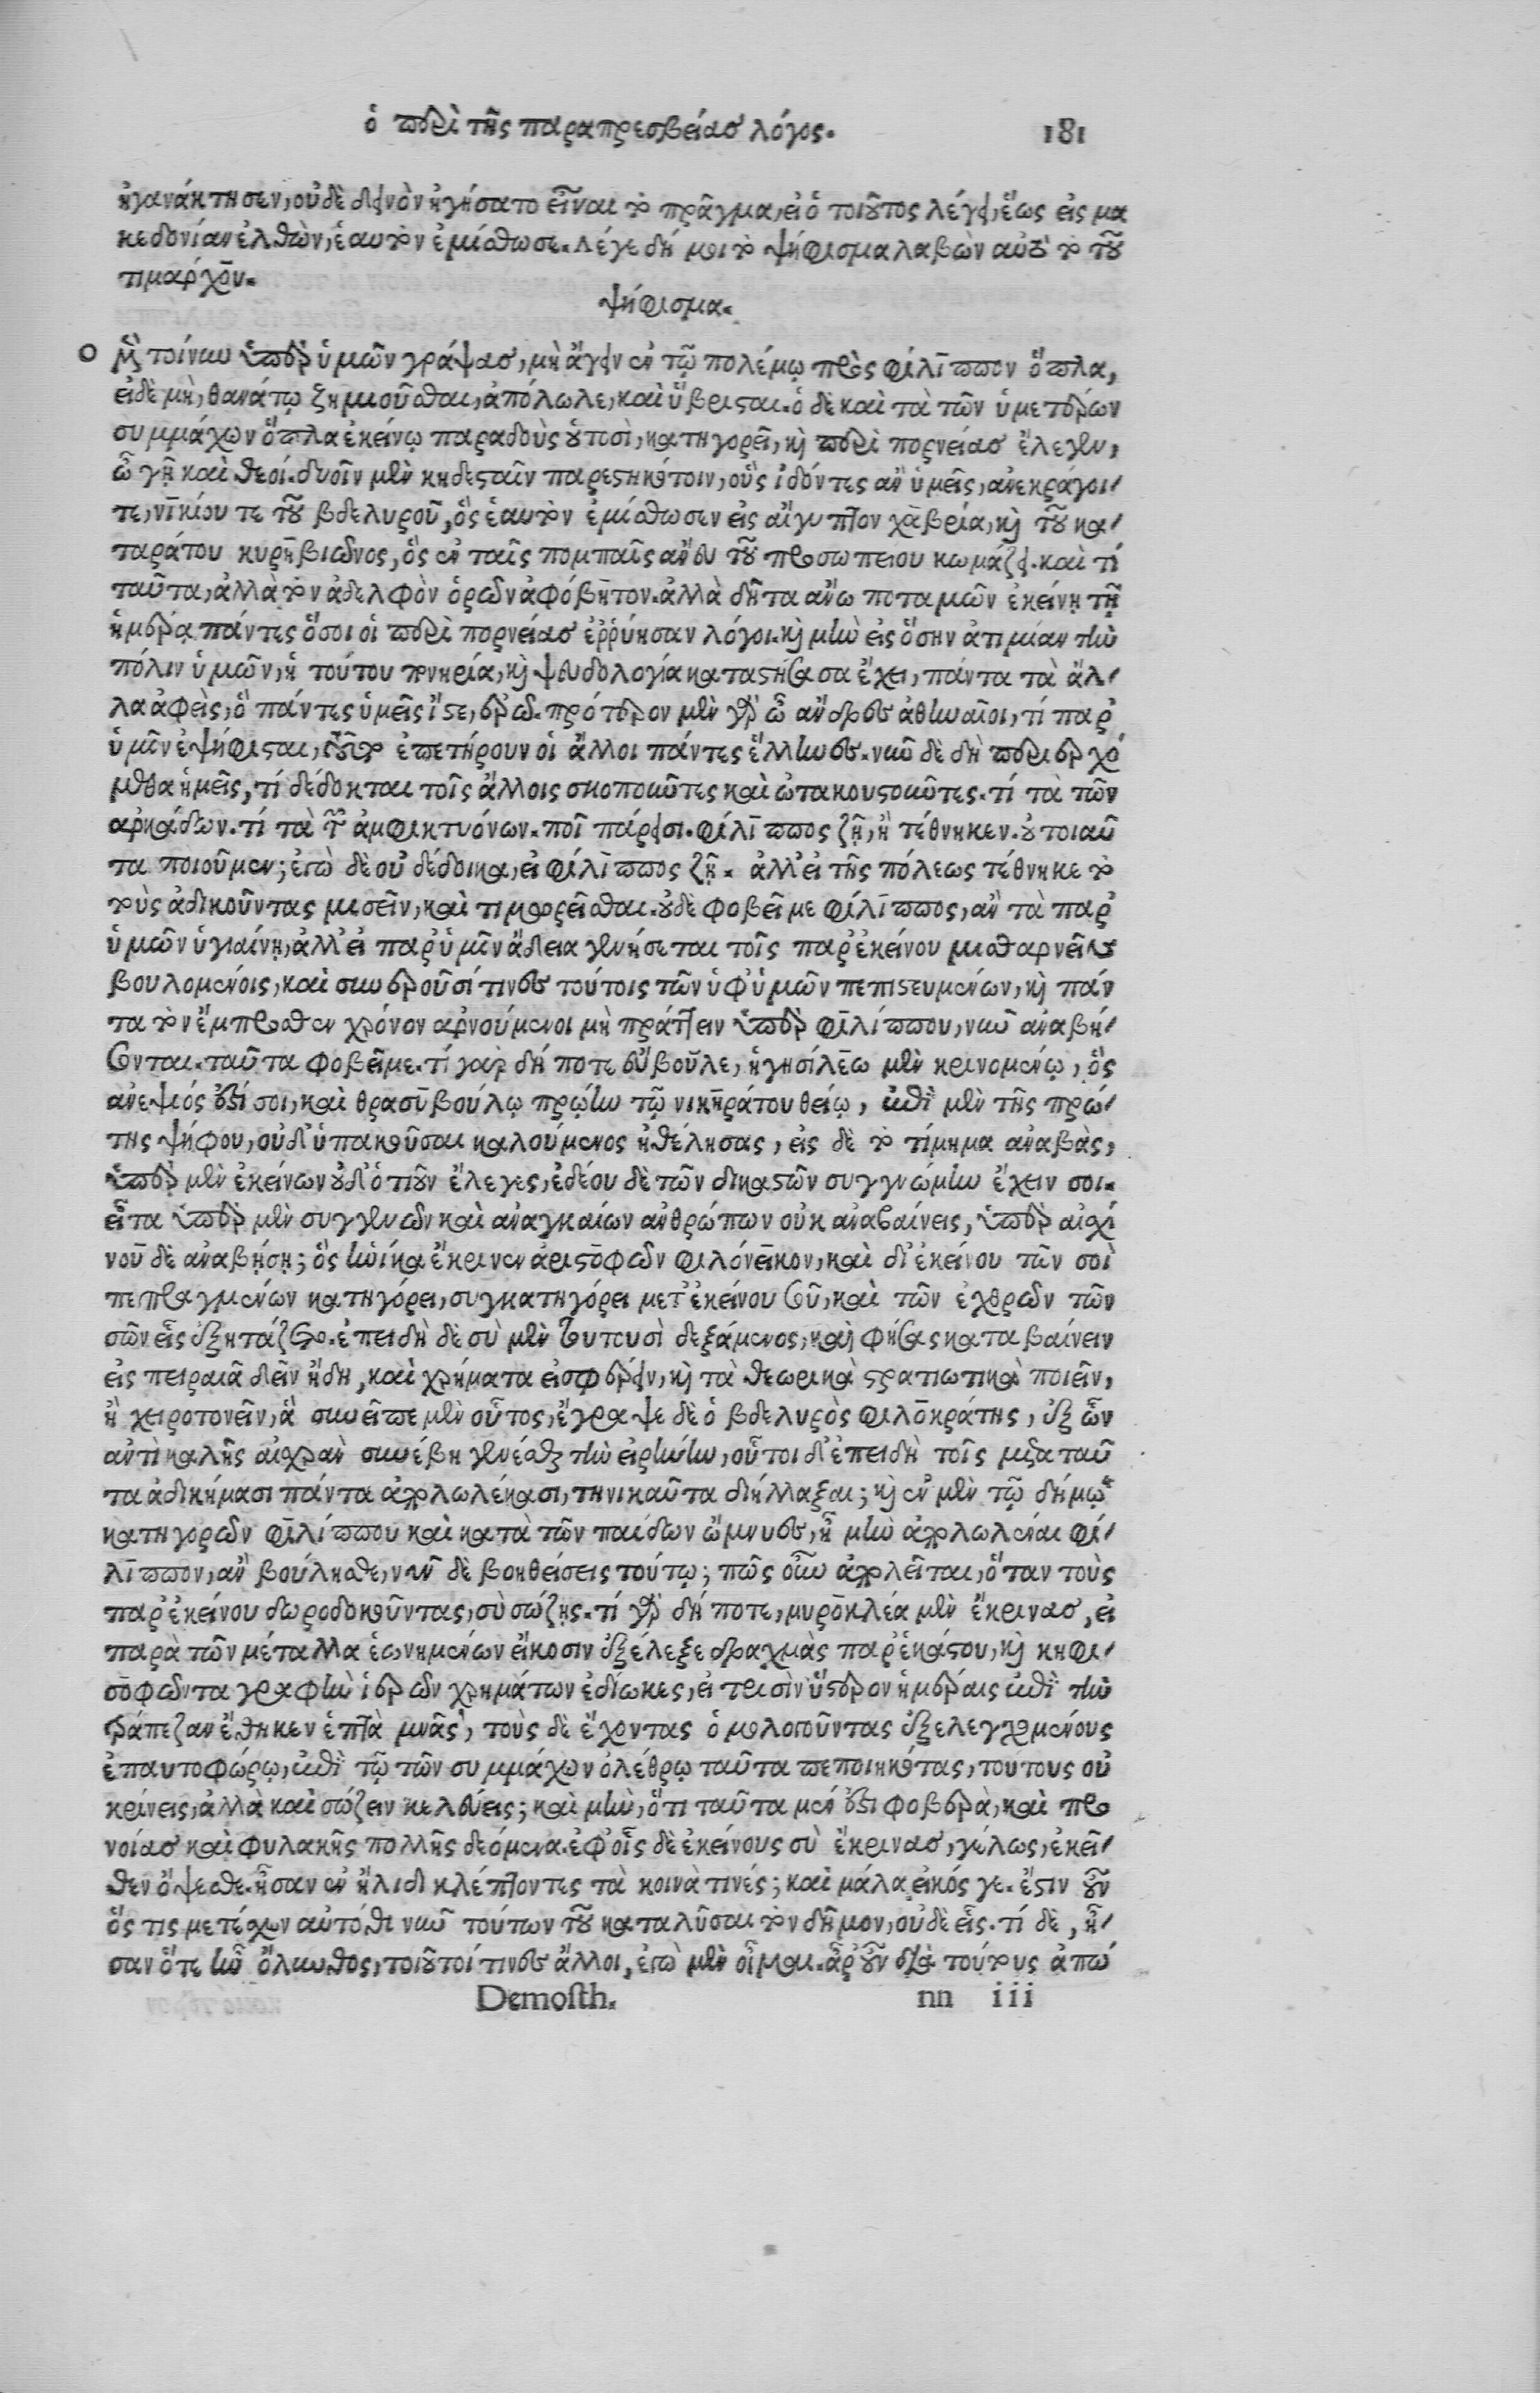 ὁ περὶ τῆς παραπρεσβείασ λόγος. 181
ἠγανάκτησεν, οὐδὲ δεινὸν ἡγήσατο εἶναι τὸ πρᾶγμα, εἰ ὁ τοιοῦτος λέγει, ἕως εἰς μα
κεδονίαν ἐλθὼν, ἑαυτὸν ἐμίσθωσε. λέγε δή μοι τὸ ψήφισμα λαβὼν αὐτὸ τὸ τοῦ
τιμάρχου.
ψήφισμα.
Ο μὲν τοίνυν ὑπὲρ ὑμῶν γράψασ, μὴ ἄγειν ἐν τῷ πολέμῳ πρὸς φίλιππον ὅπλα,
εἰ δὲ μὴ, θανάτῳ ζημιοῦσθαι, ἀπόλωλε, καὶ ὕβρισται. ὁ δὲ καὶ τὰ τῶν ὑμετέρων
συμμάχων ὅπλα ἐκείνῳ παραδοὺς οὑτοσὶ, κατηγορεῖ, καὶ περὶ πορνείασ ἔλεγεν,
ὦ γῆ καὶ θεοί. δυοῖν μὲν κηδεσταῖν παρεστηκότοιν, οὓς ἰδόντες ἂν ὑμεῖς, ἀνεκράγοι/
τε, νικίου τε τοῦ βδελυροῦ, ὃς ἑαυτὸν ἐμίσθωσεν εἰς αἴγυπτον χαβρίᾳ, καὶ τοῦ κα/
ταράτου κυρηβίωνος, ὃς ἐν ταῖς πομπαῖς ἄνευ τοῦ προσωπείου κωμάζει. καὶ τί
ταῦτα, ἀλλὰ τὸν ἀδελφὸν ὁρῶν ἀφόβητον. ἀλλὰ δῆτα ἄνω ποταμῶν ἐκείνῃ τῇ
ἡμέρᾳ πάντες ὅσοι οἱ περὶ πορνείασ ἐῤῥύησαν λόγοι. καὶ μὴν εἰς ὅσην ἀτιμίαν τὴν
πόλιν ὑμῶν, ἡ τούτου πονηρία, καὶ ψευδολογία καταστήσασα ἔχει, πάντα τὰ ἄλ/
λα ἀφεὶς, ὃ πάντες ὑμεῖς ἴστε, ἐρῶ. πρότερον μὲν γὰρ ὦ ἄνδρες ἀθηναῖοι, τί παρ’
ὑμῖν ἐψήφισται, τοῦτο ἐπετήρουν οἱ ἄλλοι πάντες ἕλληνες. νῦν δὲ δὴ περιερχό
μεθα ἡμεῖς, τί δέδοκται τοῖς ἄλλοις σκοποῦντες καὶ ὠτακουστοῦντες. τί τὰ τῶν
ἀρκάδων. τί τὰ τῶν ἀμφικτυόνων. ποῖ πάρεισι. φίλιππος ζῇ, ἢ τέθνηκεν. οὐ τοιαῦ
τα ποιοῦμεν; ἐγὼ δὲ οὐ δέδοικα, εἰ φίλιππος ζῇ. ἀλλ’ εἰ τῆς πόλεως τέθνηκε τὸ
τοὺς ἀδικοῦντας μισεῖν, καὶ τιμωρεῖσθαι. οὐδὲ φοβεῖ με φίλιππος, ἂν τὰ παρ’
ὑμῶν ὑγιαίνῃ, ἀλλ’ εἰ παρ’ ὑμῖν ἄδεια γενήσεται τοῖς παρ’ ἐκείνου μισθαρνεῖν
βουλομένοις, καὶ συνεροῦσί τινες τούτοις τῶν ὑφ’ ὑμῶν πεπιστευμένων, καὶ πάν
τα τὸν ἔμπροσθεν χρόνον ἀρνούμενοι μὴ πράττειν ὑπὲρ φιλίππου, νῦν ἀναβή/
σονται. ταῦτα φοβεῖ με. τί γὰρ δή ποτε εὔβουλε, ἡγησίλεῳ μὲν κρινομένῳ, ὃς
ἀνεψιός ἐστί σοι, καὶ θρασυβούλῳ πρώην τῷ νικηράτου θείῳ, ἐπὶ μὲν τῆς πρώ/
της ψήφου, οὐδ’ ὑπακοῦσαι καλούμενος ἠθέλησας, εἰς δὲ τὸ τίμημα ἀναβὰς,
ὑπὲρ μὲν ἐκείνων οὐδ’ ὁτιοῦν ἔλεγες, ἐδέου δὲ τῶν δικαστῶν συγγνώμην ἔχειν σοι.
εἶτα ὑπὲρ μὲν συγγενῶν καὶ ἀναγκαίων ἀνθρώπων οὐκ ἀναβαίνεις, ὑπὲρ αἰσχί
νου δὲ ἀναβήσῃ; ὃς ἡνίκα ἔκρινεν ἀριστοφῶν φιλόνεικον, καὶ δι’ ἐκείνου τῶν σοὶ
πεπραγμένων κατηγόρει, συγκατηγόρει μετ’ ἐκείνου σοῦ, καὶ τῶν ἐχθρῶν τῶν
σῶν εἷς ἐξητάζετο. ἐπειδὴ δὲ σὺ μὲν τουτουσὶ δεξάμενος, καὶ φήσας καταβαίνειν
εἰς πειραιᾶ δεῖν ἤδη, καὶ χρήματα εἰσφέρειν, καὶ τὰ θεωρικὰ στρατιωτικὰ ποιεῖν,
ἢ χειροτονεῖν, ἃ συνεῖπε μὲν οὗτος, ἔγραψε δὲ ὁ βδελυρὸς φιλοκράτης, ἐξ ὧν
ἀντὶ καλῆς αἰσχρὰν συνέβη γενέσθαι τὴν εἰρήνην, οὗτοι δ’ ἐπειδὴ τοῖς μετὰ ταῦ
τα ἀδικήμασι πάντα ἀπολωλέκασι, τηνικαῦτα διήλλαξαι; καὶ ἐν μὲν τῷ δήμῳ
κατηγορῶν φιλίππου καὶ κατὰ τῶν παίδων ὤμνυες, ἦ μὴν ἀπολωλέναι φί/
λιππον, ἂν βούλησθε, νῦν δὲ βοηθείσεις τούτῳ; πῶς οὖν ἀπολεῖται, ὅταν τοὺς
παρ’ ἐκείνου δωροδοκοῦντας, σὺ σώζῃς. τί γὰρ δή ποτε, μυροκλέα μὲν ἔκρινασ, εἰ
παρὰ τῶν μέταλλα ἐωνημένων εἴκοσιν ἐξέλεξε δραχμὰς παρ’ ἑκάστου, καὶ κηφι/
σοφῶντα γραφὴν ἱερῶν χρημάτων ἐδίωκες, εἰ τρισὶν ὕστερον ἡμέραις ἐπὶ τὴν
τράπεζαν ἔθηκεν ἑπτὰ μνᾶς, τοὺς δὲ ἔχοντας ὁμολογοῦντας ἐξελεγχομένους
ἐπαυτοφώρῳ, ἐπὶ τῷ τῶν συμμάχων ὀλέθρῳ ταῦτα πεποιηκότας, τούτους οὐ
κρίνεις, ἀλλὰ καὶ σώζειν κελεύεις; καὶ μὴν, ὅτι ταῦτα μέν ἐστι φοβερὰ, καὶ προ
νοίασ καὶ φυλακῆς πολλῆς δεόμενα. ἐφ’ οἷς δὲ ἐκείνους σὺ ἔκρινασ, γέλως, ἐκεῖ/
θεν ὄψεσθε. ἦσαν ἐν ἤλιδι κλέπτοντες τὰ κοινὰ τινές; καὶ μάλα εἰκός γε. ἔστιν οὖν
ὅς τις μετέσχων αὐτόθι νῦν τούτων τοῦ καταλῦσαι τὸν δῆμον, οὐδὲ εἷς. τί δὲ, ἦ/
σαν ὅτε ἦν ὄλυνθος, τοιοῦτοί τινες ἄλλοι, ἐγὼ μὲν οἶμαι. ἆρ’ οὖν διὰ τούτους ἀπώ
Demosth. nn iii